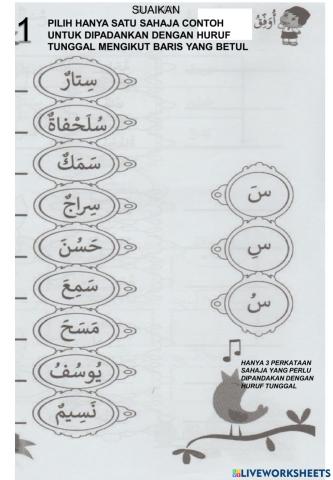 SUAIKAN
أُوَفِّقُ
1
PILIH HANYA SATU SAHAJA CONTOH
UNTUK DIPADANKAN DENGAN HURUF
TUNGGAL MENGIKUT BARIS YANG BETUL
سِتارٌ
سُلَحْفاةٌ
سَمَكٌ
سِراجٌ
حَسُنَ
سَمِعَ
مَسَحَ
يُوسُفُ
نَسِيمٌ
سَ
سِ
سُ
HANYA 3 PERKATAAN
SAHAJA YANG PERLU
DIPANDAKAN DENGAN
HURUF TUNGGAL
LIVEWORKSHEETS